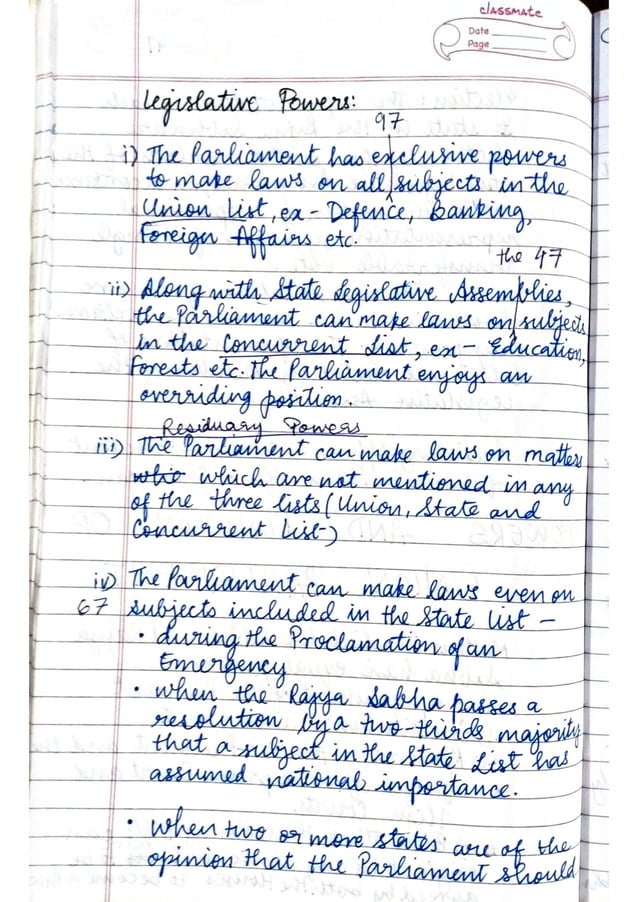 classmate
Date
Page
Legislative Powers:
97
i) The Parliament has exclusive powers
to make laws on all subjects in the
Union List, ex - Defence, Banking,
Foreign Affairs etc.
the 47
ii) Along with State Legislative Assemblies,
the Parliament can make laws on subjects
in the Concurrent List, ex - Education,
Forests etc. The Parliament enjoys an
overriding position.
Residuary Powers
iii) The Parliament can make laws on matters
who which are not mentioned in any
of the three lists (Union, State and
Concurrent List)
iv) The Parliament can make laws even on
67 subjects included in the State list -
• during the Proclamation of an
Emergency
• when the Rajya Sabha passes a
resolution by a two-thirds majority
that a subject in the State List has
assumed national importance.
• when two or more states are of the
opinion that the Parliament should